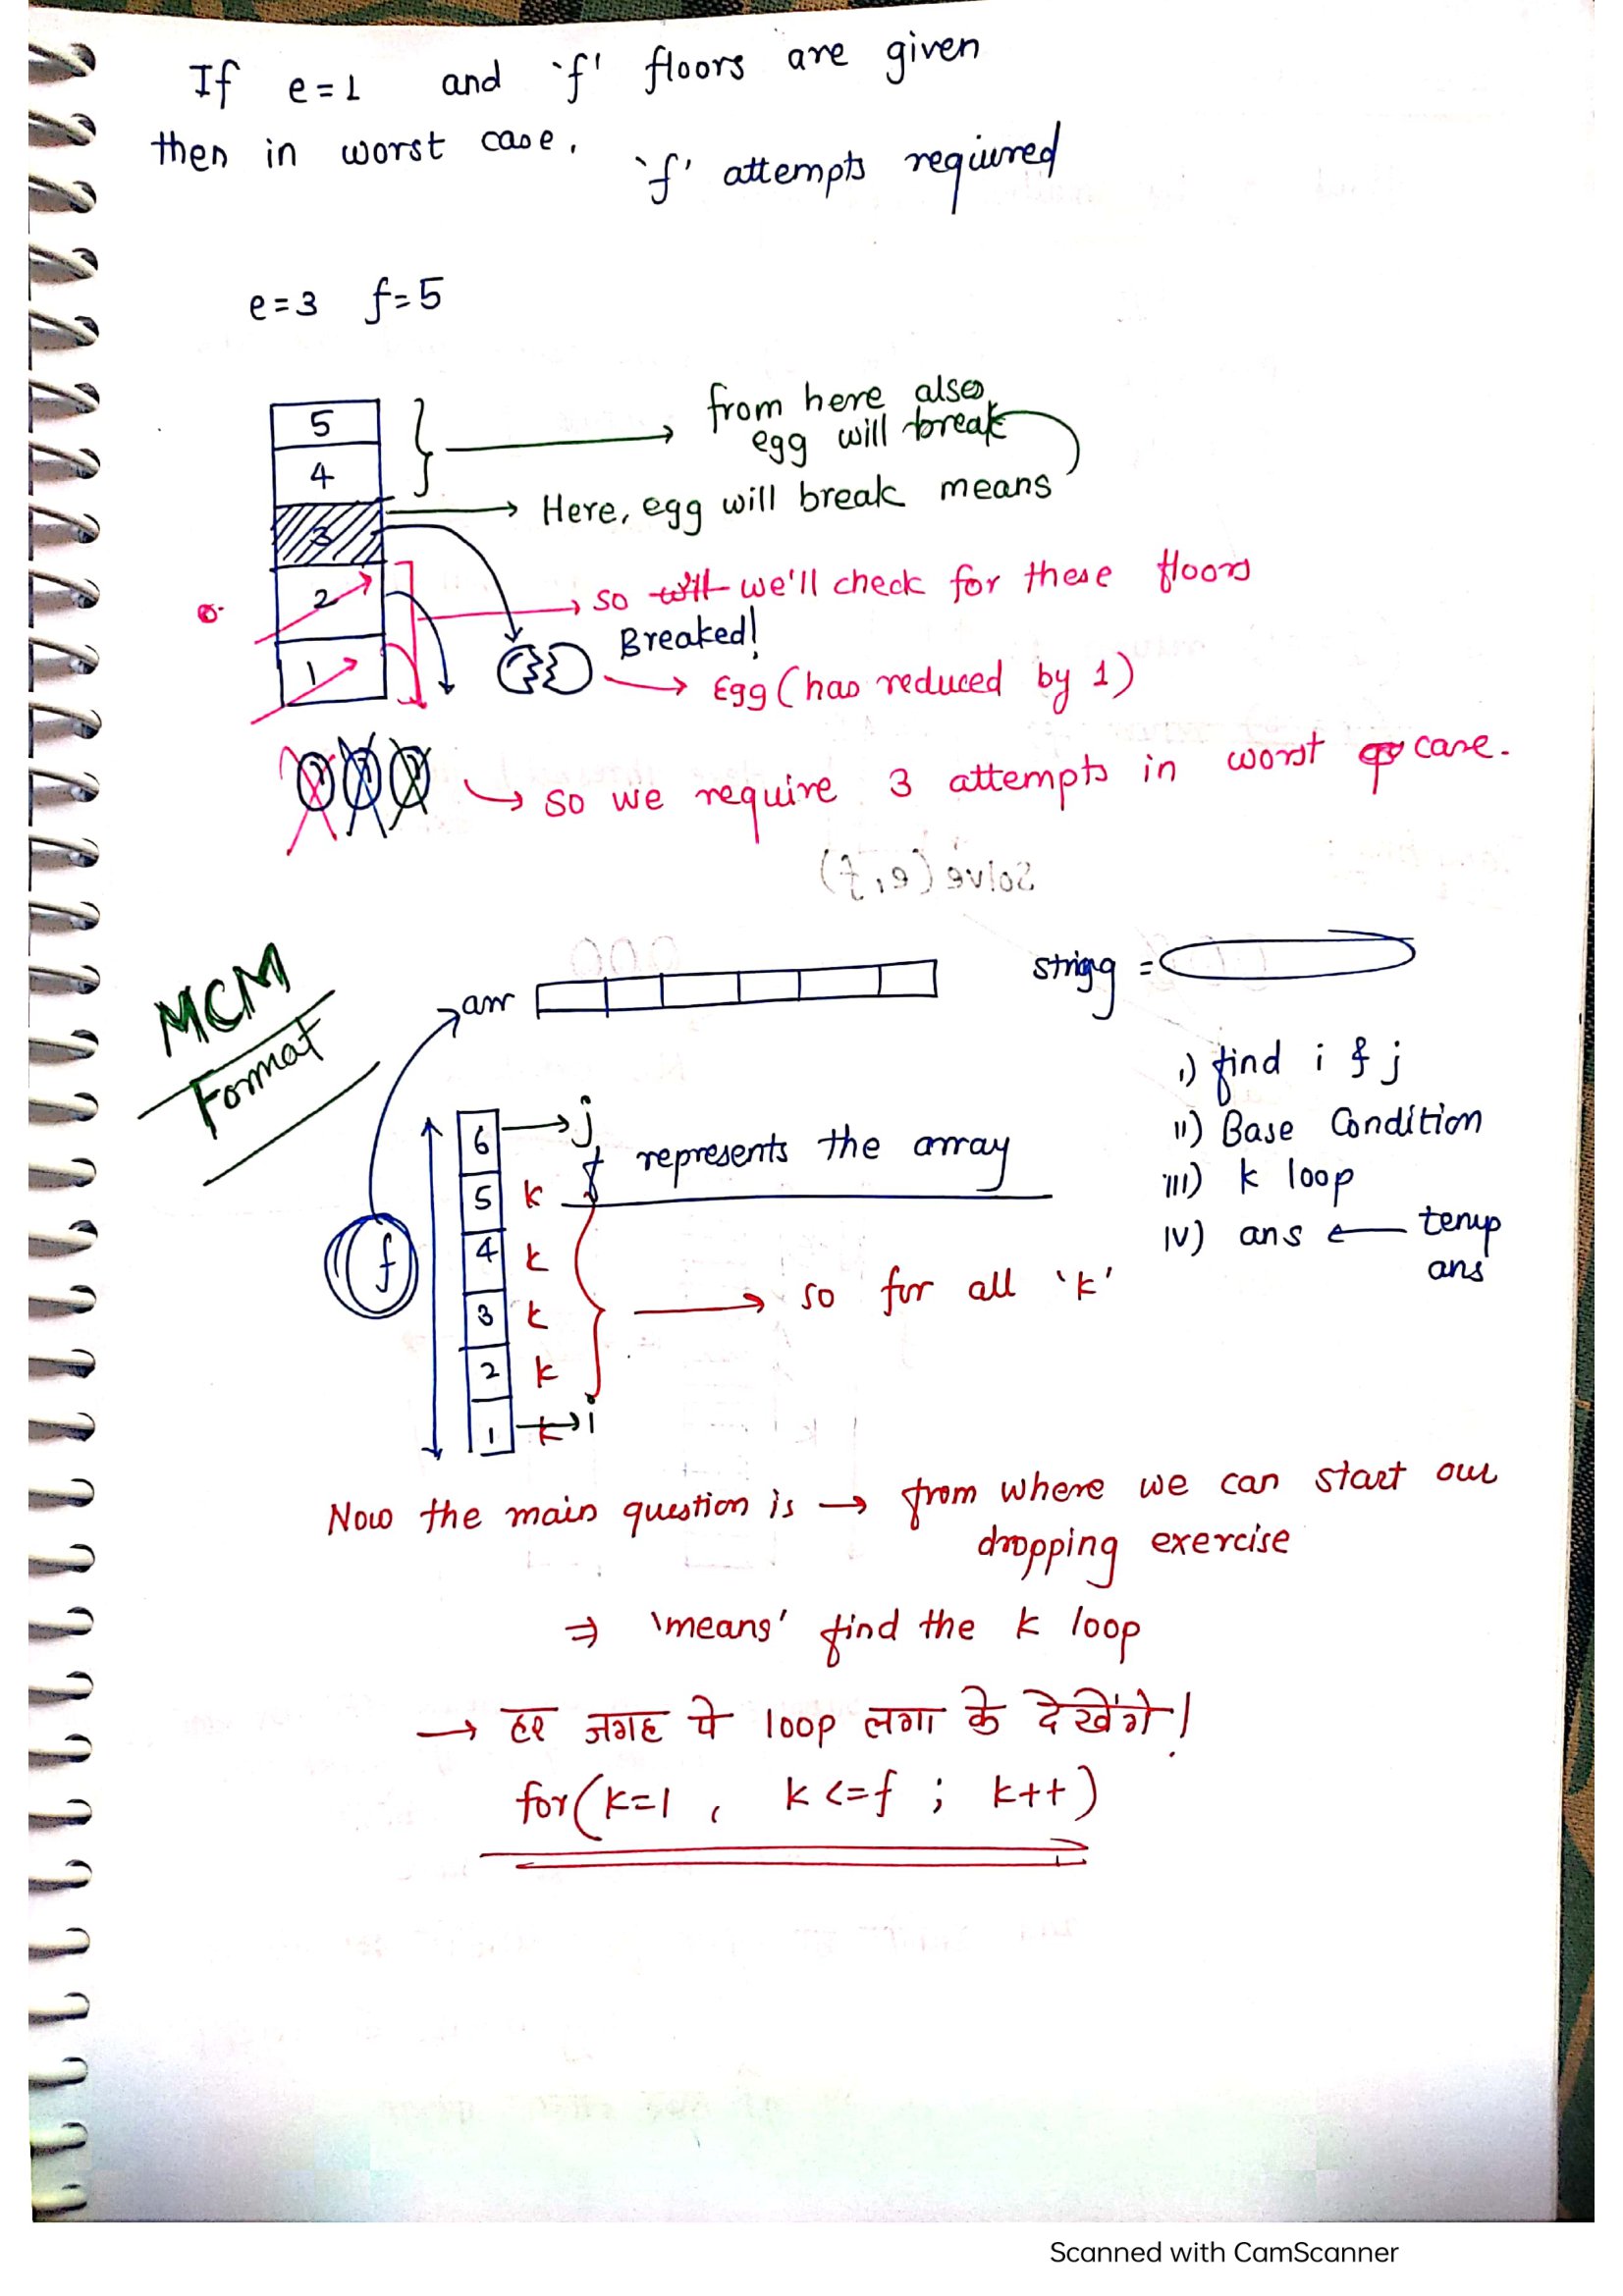 If e=1 and 'f' floors are given
then in worst case, 'f' attempts required
e=3 f=5
5
4
3
2
1
from here also
egg will break
Here, egg will break means
so will we'll check for these floors
Breaked!
Egg (has reduced by 1)
so we require 3 attempts in worst case.
MCM
Format
arr
string =
i) find i & j
ii) Base Condition
iii) k loop
iv) ans ← temp
ans
f
6 → j
5 k
4 k
3 k
2 k
1 k → i
f represents the array
so for all 'k'
Now the main question is → from where we can start our
dropping exercise
⇒ 'means' find the k loop
→ हर जगह पे loop लगा के देखेंगे!
for(k=1, k<=f; k++)
Scanned with CamScanner